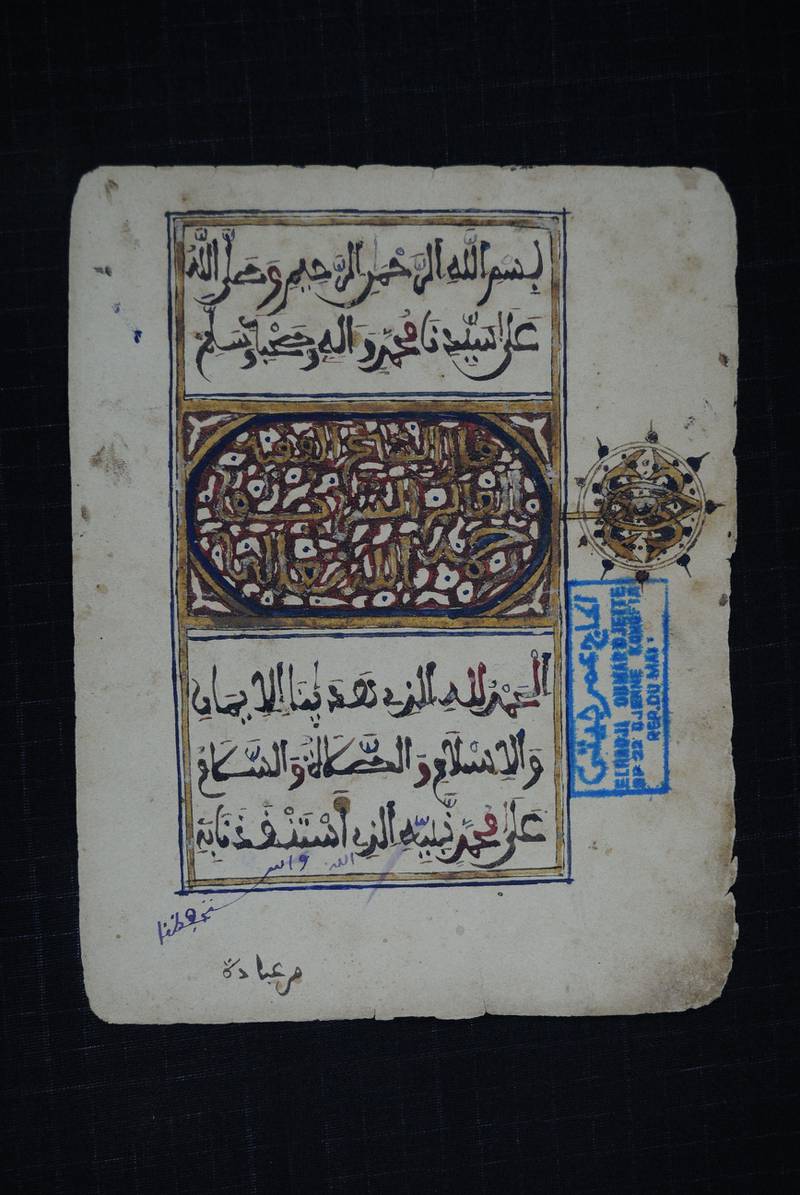 بِسْمِ اللَّهِ الرَّحْمٰنِ الرَّحِيمِ وَصَلَّى اللَّهُ
عَلَى سَيِّدِنَا مُحَمَّدٍ وَآلِهِ وَصَحْبِهِ وَسَلَّمَ
قال الشيخ الفقيه
العالم
رحمه الله تعالى
الْحَمْدُ لِلَّهِ الَّذِي هَدَينَا لِلإيمَانِ
وَالاِسْلَامِ وَالصَّلَاةُ وَالسَّلَامُ
عَلَى مُحَمَّدٍ نَبِيِّهِ الَّذِي اسْتَنْقَذَنَا بِهِ
من عبادة
الحاج عمر
ELHADJI OUMAR DJEITE
BP-22 DJENNE KONOFIA
REP.DU MALI